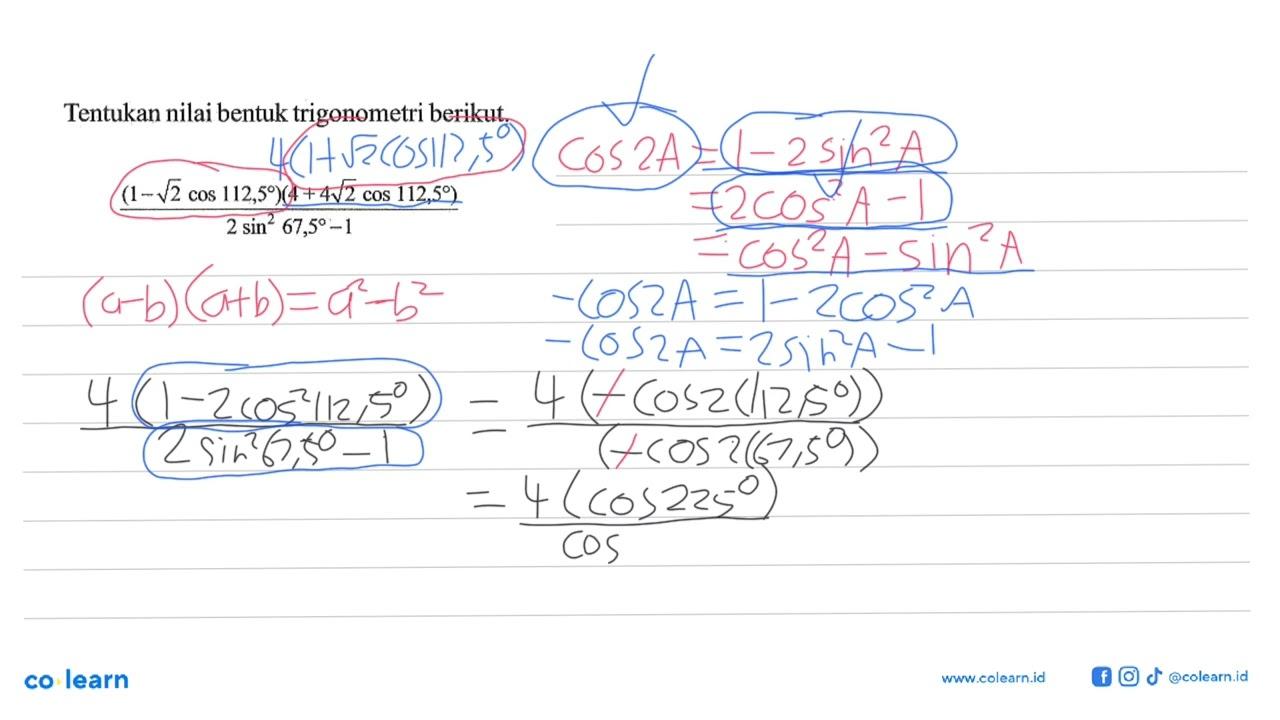 Tentukan nilai bentuk trigonometri berikut.
4(1+√2cos112,5⁰)
(1-√2 cos 112,5°)(4+4√2 cos 112,5°)
2 sin² 67,5°-1
cos2A = 1-2sin²A
= 2cos²A-1
= cos²A-sin²A
(a-b)(a+b)=a²-b²
-cos2A = 1-2cos²A
-cos2A = 2sin²A-1
4(1-2cos²112,5⁰) = 4(-cos2(112,5⁰))
2sin²67,5⁰-1 (-cos2(67,5⁰)
= 4(cos225⁰)
cos
co learn
www.colearn.id
@colearn.id